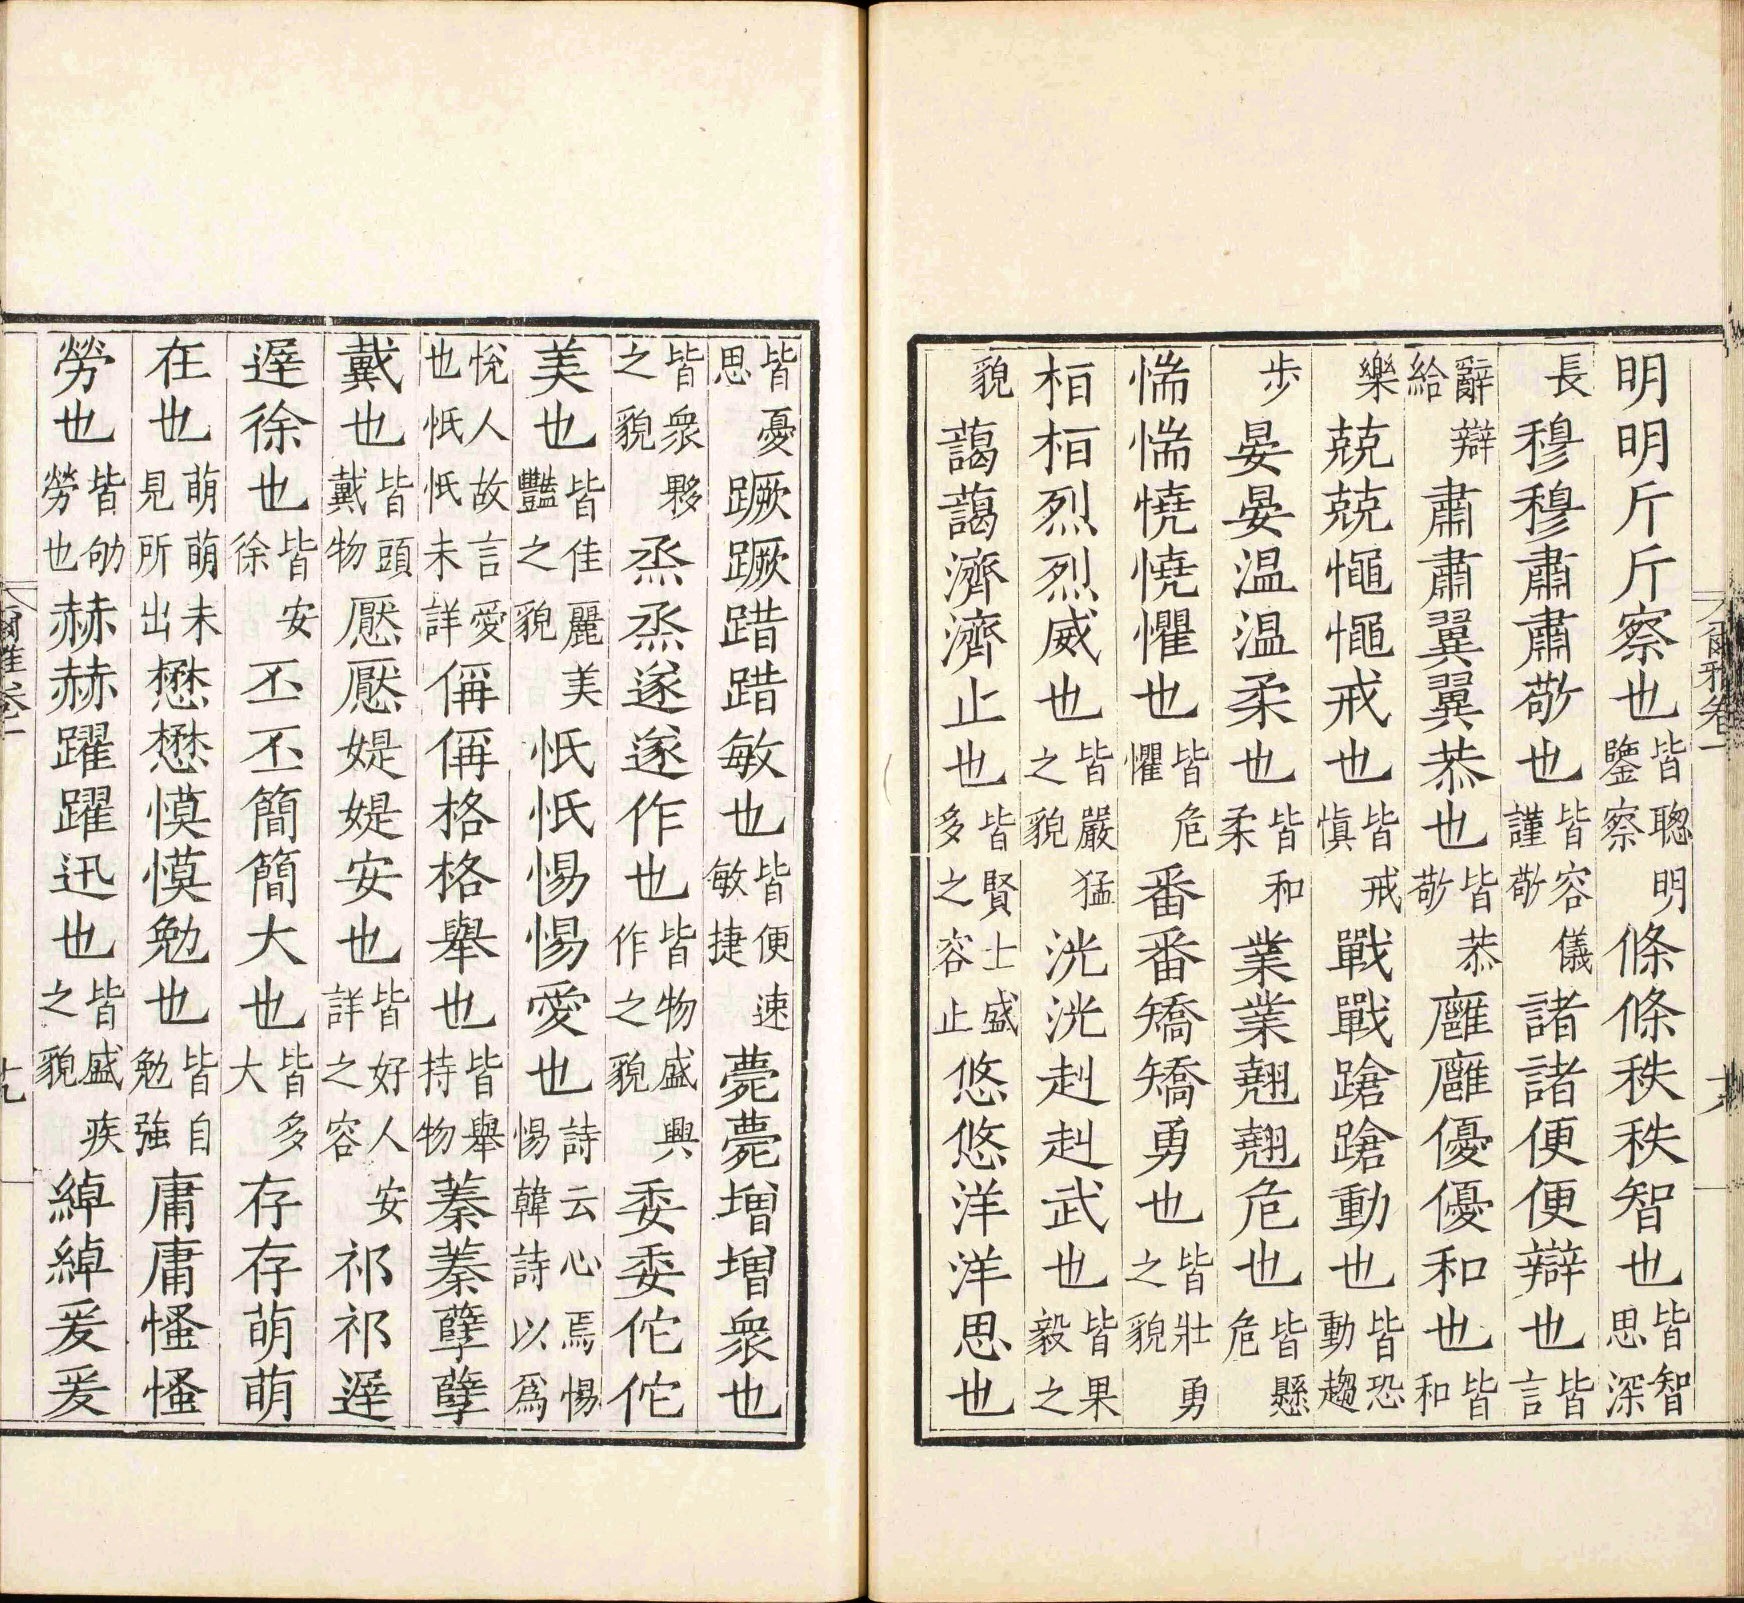 爾雅卷一 十八
明明斤斤察也皆聰明鑒察條條秩秩智也皆智思深
長穆穆肅肅敬也皆容儀謹敬諸諸便便辯也皆言
辭辯給肅肅翼翼恭也皆恭敬廱廱優優和也皆和
樂兢兢憴憴戒也皆戒慎戰戰蹌蹌動也皆恐動趨
步晏晏温温柔也皆和柔業業翹翹危也皆懸危
惴惴憢憢懼也皆危懼番番矯矯勇也皆壯勇之貌
桓桓烈烈威也皆嚴猛之貌洸洸赳赳武也皆果毅之
貌藹藹濟濟止也皆賢士盛多之容止悠悠洋洋思也
皆憂思蹶蹶踖踖敏也皆便速敏捷薨薨增增衆也
皆衆夥之貌烝烝遂遂作也皆物盛興作之貌委委佗佗
美也皆佳麗美豔之貌忯忯惕惕愛也詩云心焉惕惕韓詩以爲
悅人故言愛也忯忯未詳偁偁格格舉也皆舉持物蓁蓁孽孽
戴也皆頭戴物懕懕媞媞安也皆好人安詳之容祁祁遟
遟徐也皆安徐丕丕簡簡大也皆多大存存萌萌
在也萌萌未見所出懋懋慔慔勉也皆自勉強庸庸慅慅
勞也皆劬勞也赫赫躍躍迅也皆盛疾之貌綽綽爰爰
爾雅卷一 十九